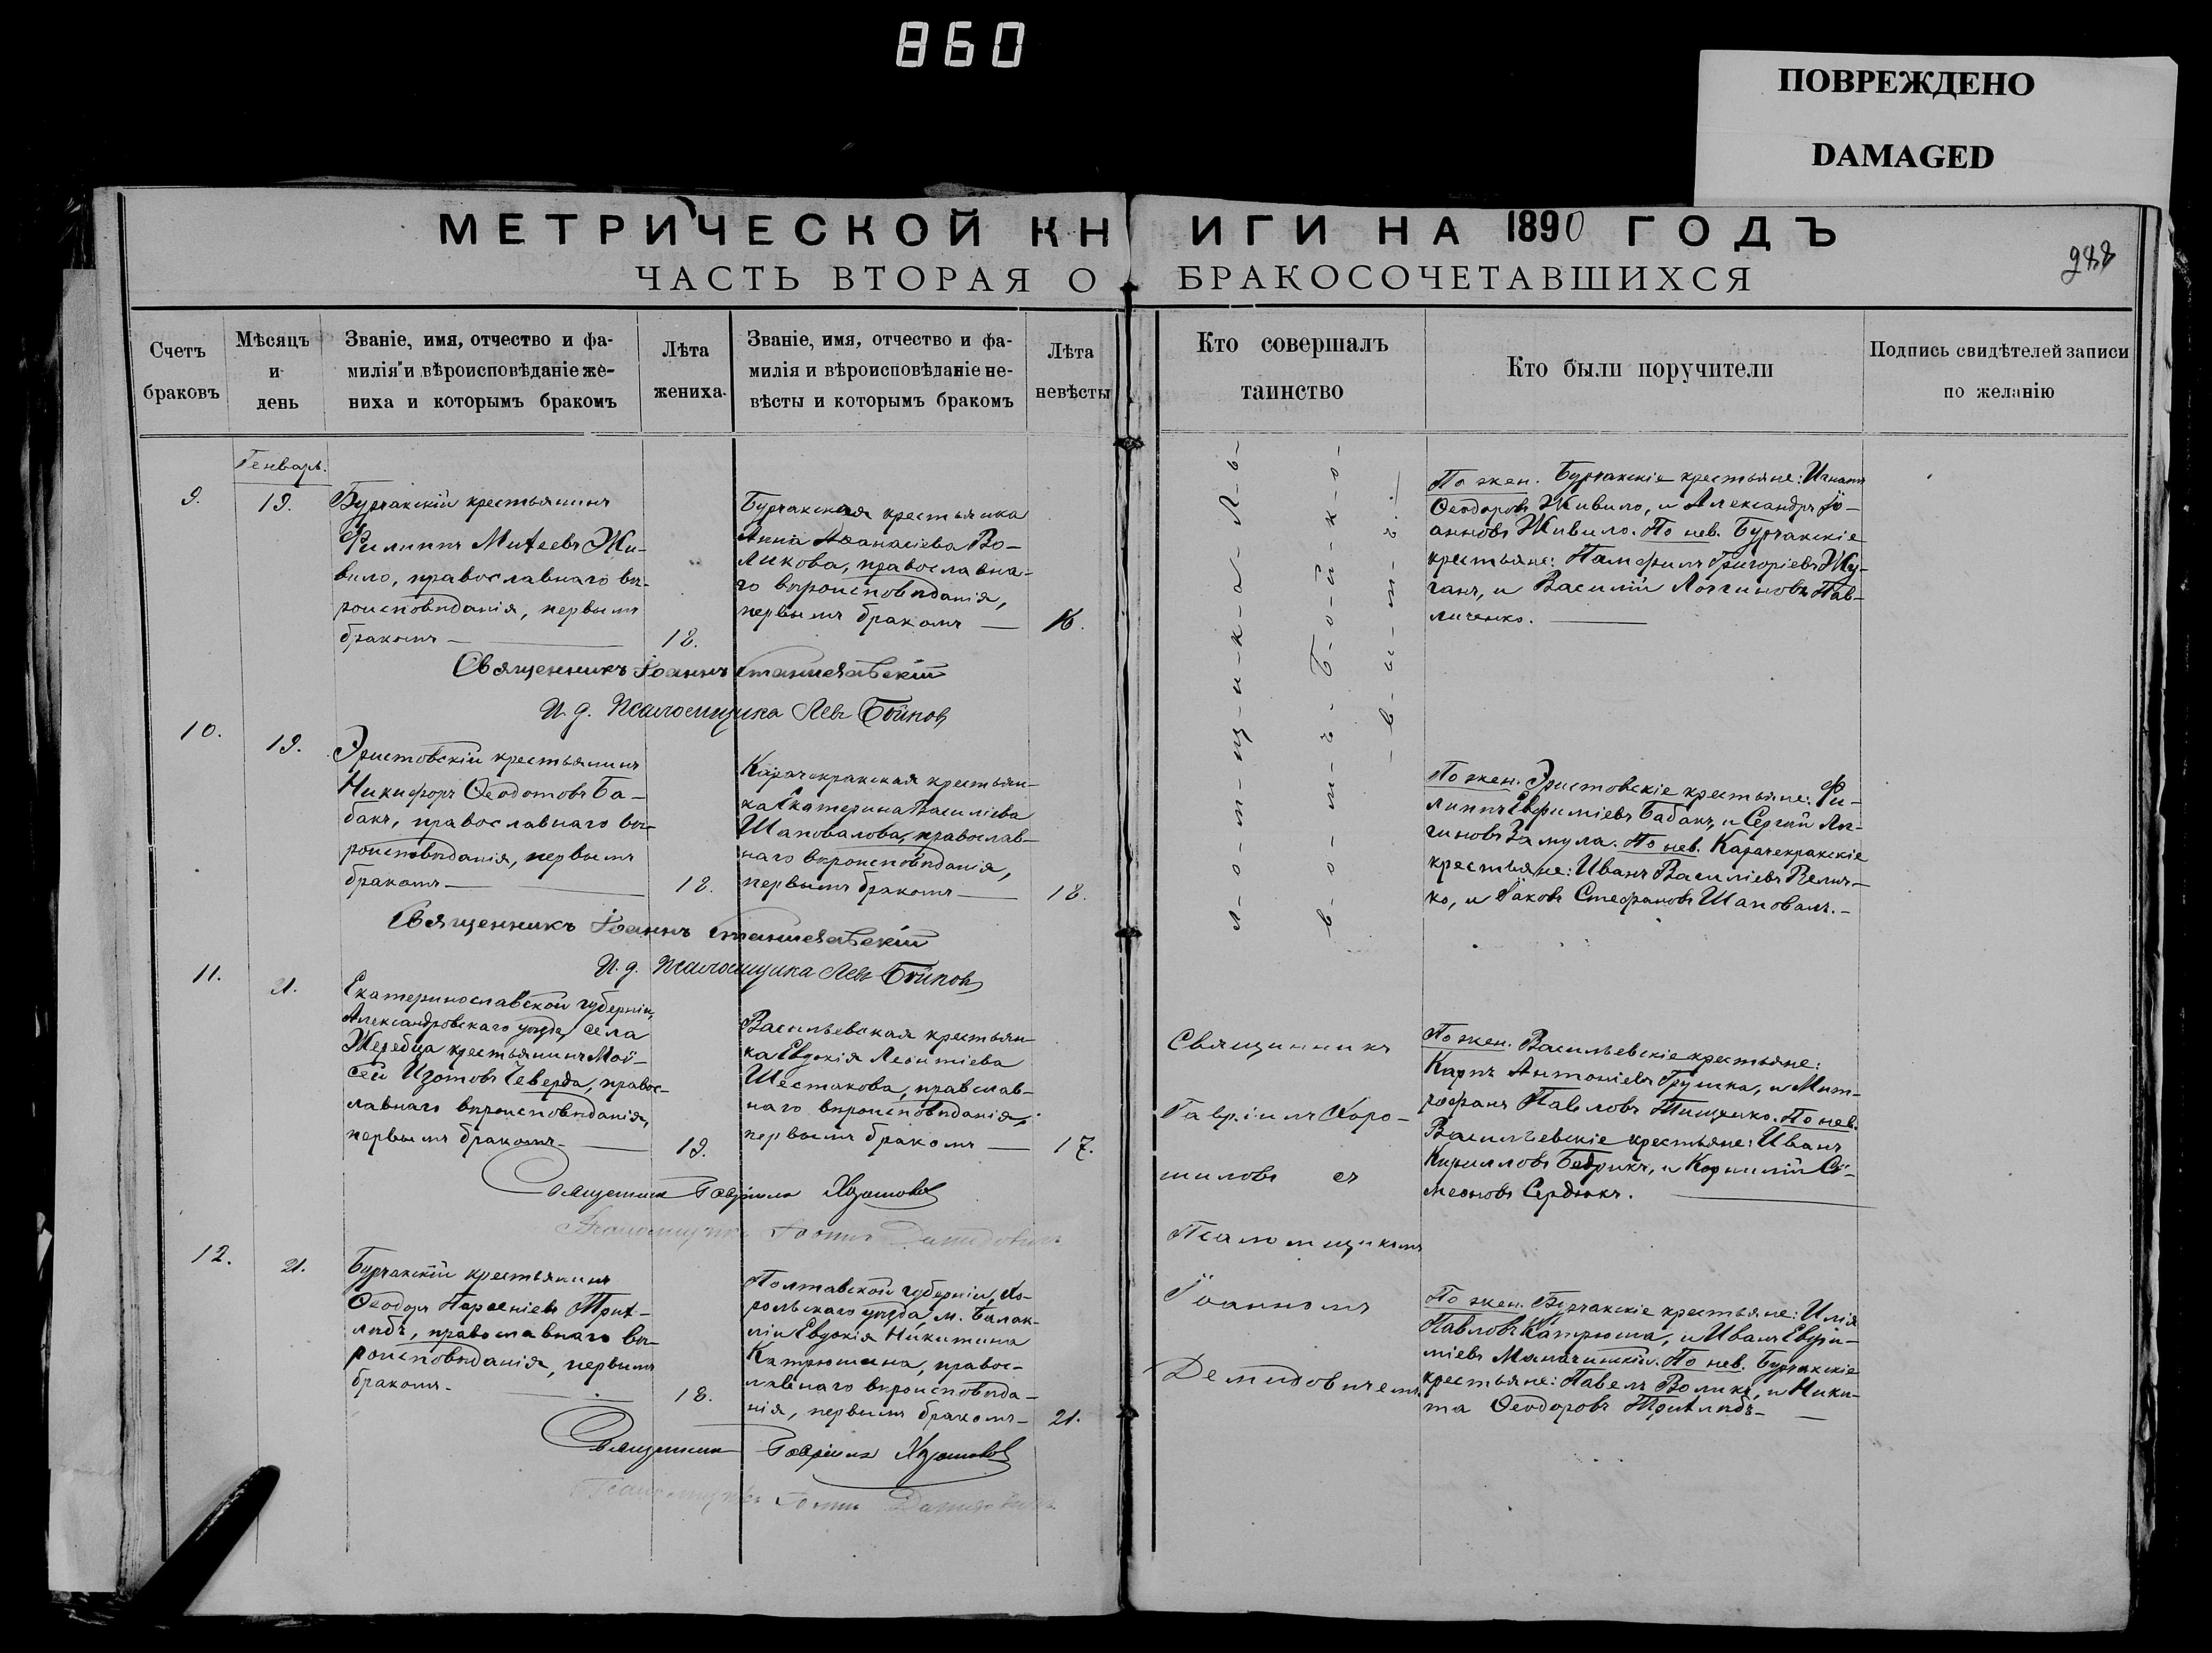 860
ПОВРЕЖДЕНО
DAMAGED
МЕТРИЧЕСКОЙ КНИГИ НА 1890 ГОДЪ
ЧАСТЬ ВТОРАЯ О БРАКОСОЧЕТАВШИХСЯ
Счетъ
браковъ
Мѣсяцъ
и
день
Званіе, имя, отчество и фа-
милія и вѣроисповѣданіе же-
ниха и которымъ бракомъ
Лѣта
жениха.
Званіе, имя, отчество и фа-
милія и вѣроисповѣданіе не-
вѣсты и которымъ бракомъ
Лѣта
невѣсты
Кто совершалъ
таинство
Кто были поручители
Подпись свидѣтелей записи
по желанію
Генварь.
9.
19.
Бурчакскій крестьянинъ
Филиппъ Матѳеевъ Жи-
вило, православнаго вѣ-
роисповѣданія, первымъ
бракомъ
18.
Бурчакская крестьянка
Анна Аѳанасіева Во-
ликова, православна-
го вѣроисповѣданія,
первымъ бракомъ
16.
По жен. Бурчакскіе крестьяне: Игнатъ
Ѳеодоровъ Живило, и Александръ Іо-
анновъ Живило. По нев. Бурчакскіе
крестьяне: Памфилъ Григоріевъ Жу-
ганъ, и Василій Логгиновъ Пав-
личенко.
Священникъ Іоаннъ Станиславскій
И. д. Псаломщика Левъ Бойковъ
10.
19.
Эристовскій крестьянинъ
Никифоръ Ѳеодотовъ Ба-
бакъ, православнаго вѣ-
роисповѣданія, первымъ
бракомъ
18.
Карачекракская крестьян-
ка Екатерина Василіева
Шаповалова, православ-
наго вѣроисповѣданія,
первымъ бракомъ
18.
По жен. Эристовскіе крестьяне: Фи-
липпъ Евфиміевъ Бабакъ, и Сергій Ло-
гиновъ Замула. По нев. Карачекракскіе
крестьяне: Иванъ Василіевъ Велич-
ко, и Іаковъ Стефановъ Шаповалъ.
Священникъ Іоаннъ Станиславскій
И. д. Псаломщика Левъ Бойковъ
11.
21.
Екатеринославской губерніи,
Александровскаго уѣзда, села
Жеребца крестьянинъ Мои-
сей Изотовъ Чеверда, правос-
лавнаго вѣроисповѣданія,
первымъ бракомъ
19.
Васильевская крестьян-
ка Евдокія Леонтіева
Шестакова, православ-
наго вѣроисповѣданія,
первымъ бракомъ
17.
Священникъ
Гавріилъ Хоро-
шиловъ съ
Псаломщикомъ
Іоанномъ
Демидовичемъ
По жен. Васильевскіе крестьяне:
Карпъ Антоніевъ Грушка, и Мит-
рофанъ Павловъ Тищенко. По нев.
Васильевскіе крестьяне: Иванъ
Кирилловъ Бедрикъ, и Корнилій Си-
меоновъ Сердюкъ.
Священникъ Гавріилъ Хорошиловъ
Псаломщикъ Іоаннъ Демидовичъ
12.
21.
Бурчакскій крестьянинъ
Ѳеодоръ Парѳеніевъ Трит-
лѣбъ, православнаго вѣ-
роисповѣданія, первымъ
бракомъ
18.
Полтавской губерніи, Хо-
рольскаго уѣзда, м. Балак-
ліи Евдокія Никитина
Катрюшина, правос-
лавнаго вѣроисповѣда-
нія, первымъ бракомъ
21.
По жен. Бурчакскіе крестьяне: Илія
Павловъ Катрюша, и Иванъ Евфи-
міевъ Маначинскій. По нев. Бурчакскіе
крестьяне: Павелъ Воликъ, и Ники-
та Ѳеодоровъ Тритлѣбъ
Священникъ Гавріилъ Хорошиловъ
Псаломщикъ Іоаннъ Демидовичъ